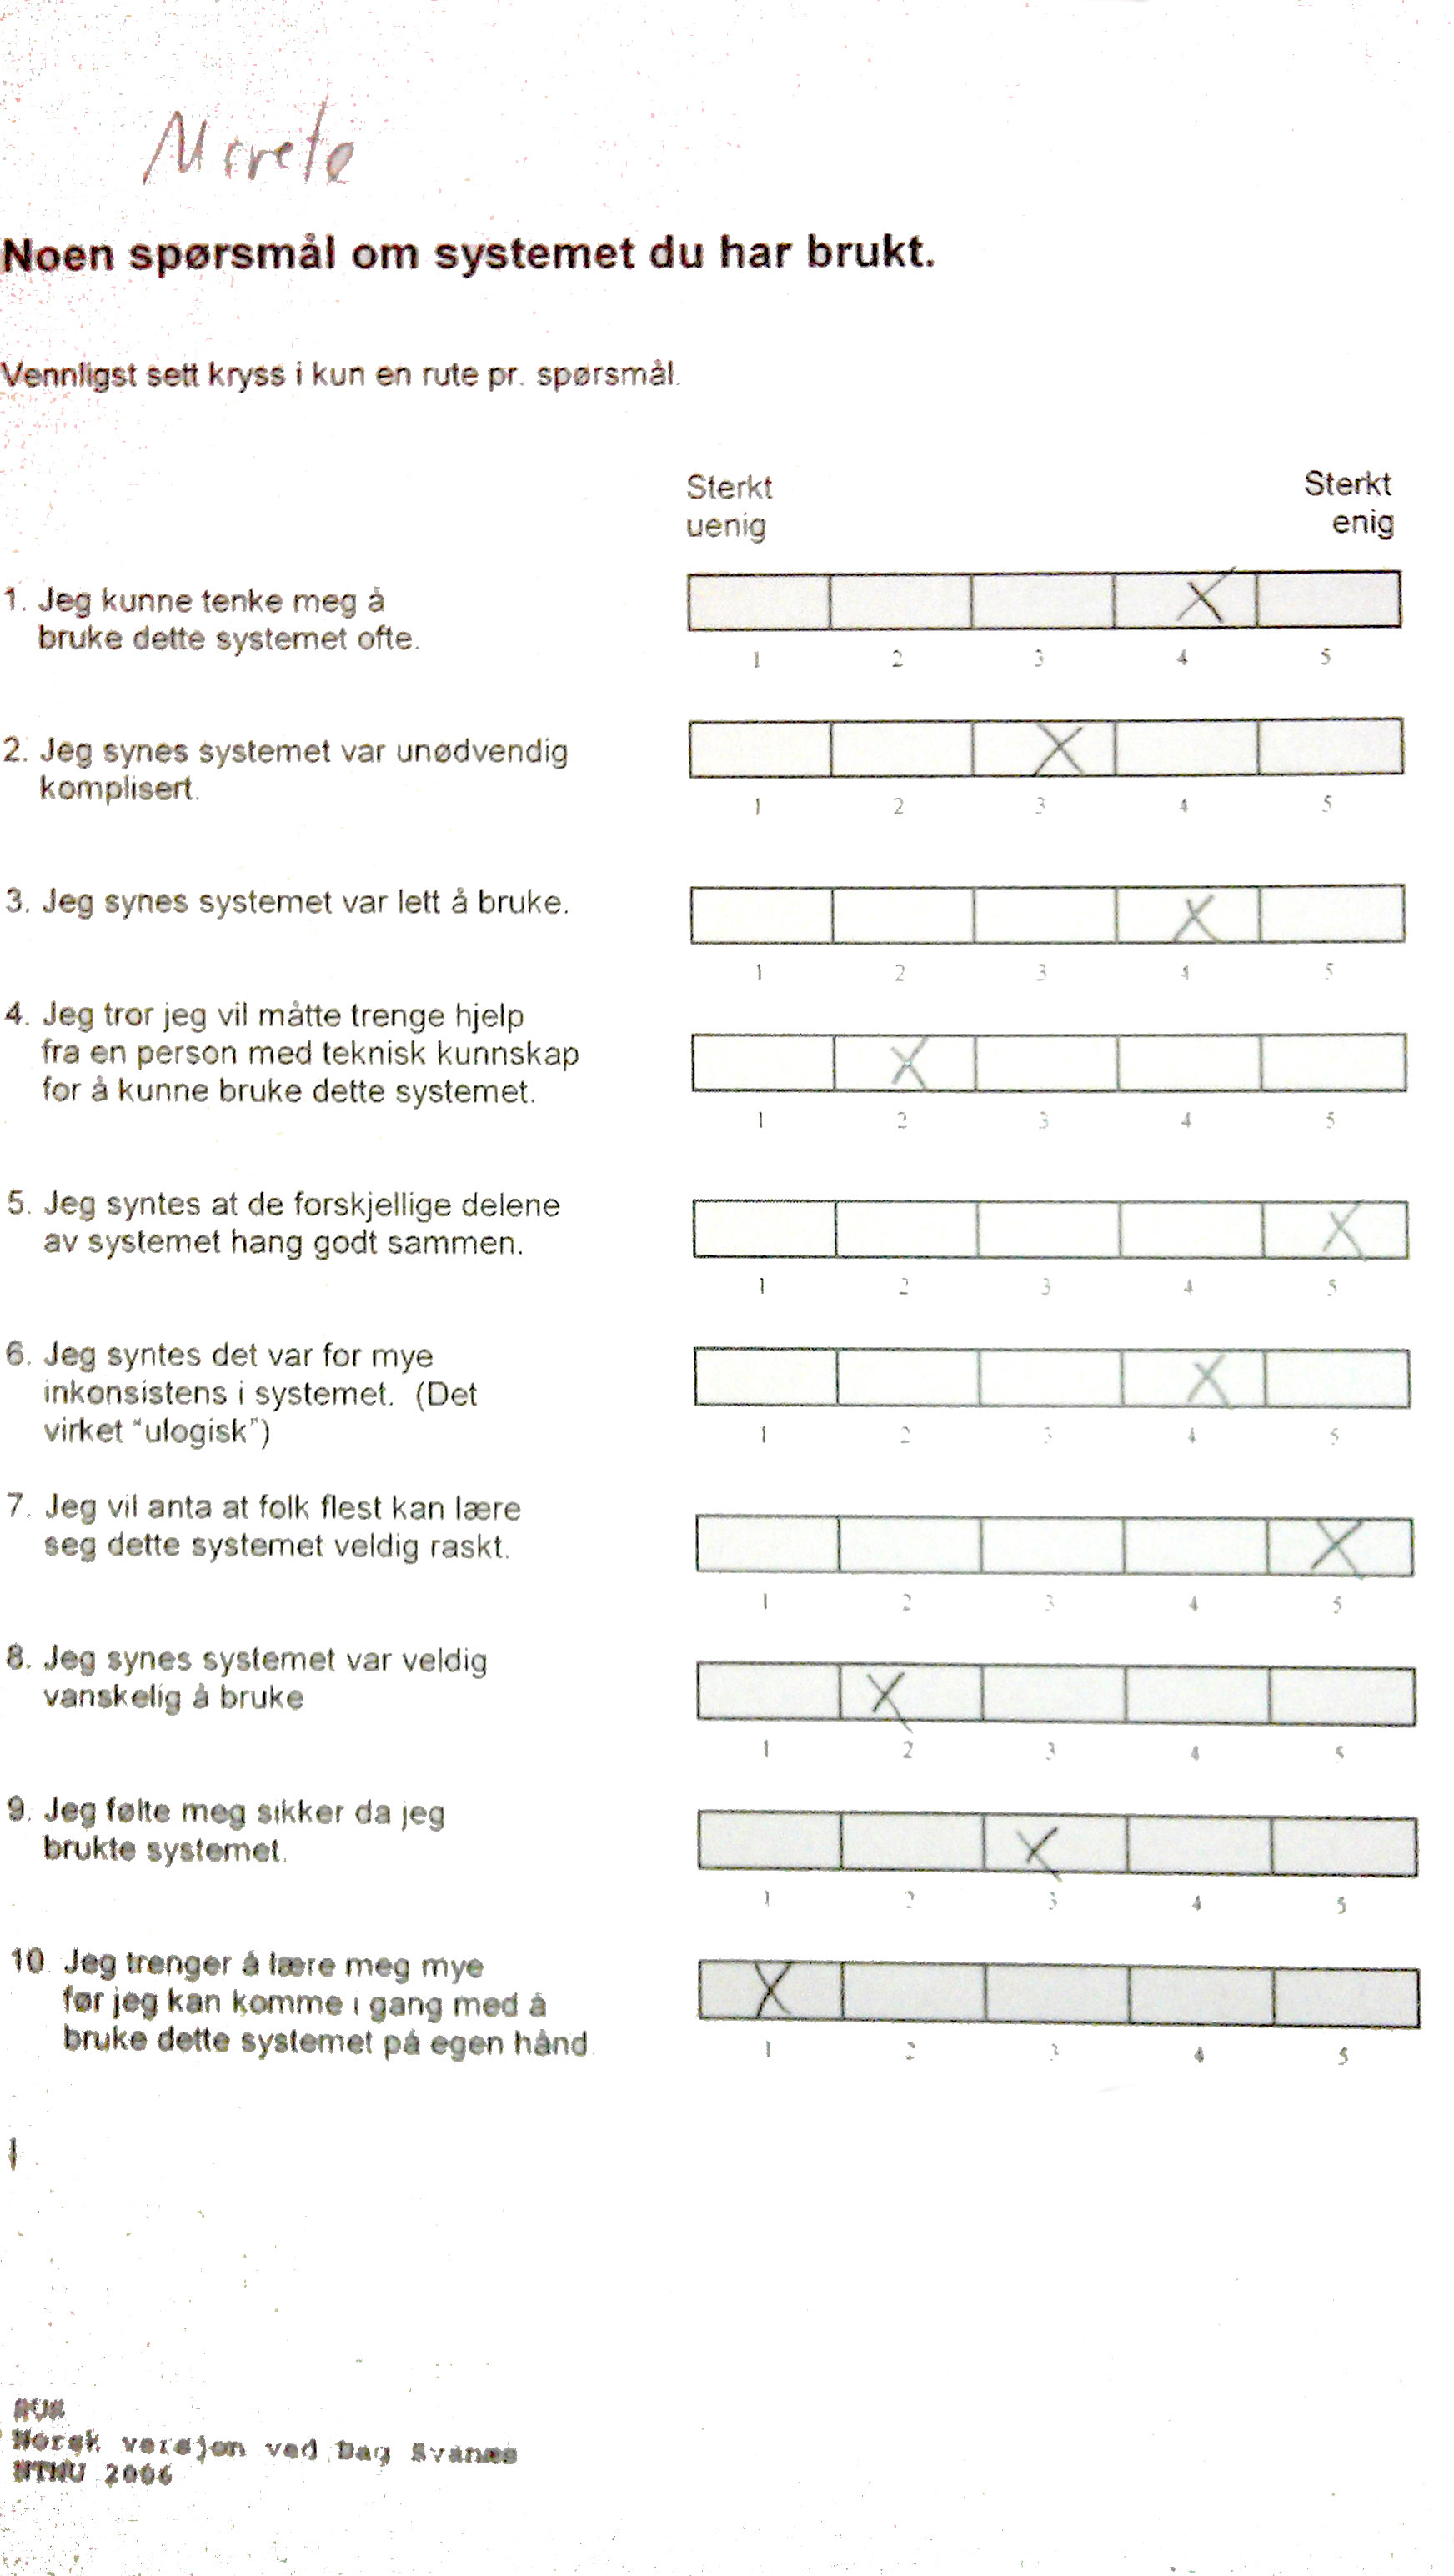 Merete
Noen spørsmål om systemet du har brukt.
Vennligst sett kryss i kun en rute pr. spørsmål.
Sterkt uenig
Sterkt enig
1. Jeg kunne tenke meg å
bruke dette systemet ofte.
X
1 2 3 4 5
2. Jeg synes systemet var unødvendig
komplisert.
X
1 2 3 4 5
3. Jeg synes systemet var lett å bruke.
X
1 2 3 4 5
4. Jeg tror jeg vil måtte trenge hjelp
fra en person med teknisk kunnskap
for å kunne bruke dette systemet.
X
1 2 3 4 5
5. Jeg syntes at de forskjellige delene
av systemet hang godt sammen.
X
1 2 3 4 5
6. Jeg syntes det var for mye
inkonsistens i systemet. (Det
virket “ulogisk”)
X
1 2 3 4 5
7. Jeg vil anta at folk flest kan lære
seg dette systemet veldig raskt.
X
1 2 3 4 5
8. Jeg synes systemet var veldig
vanskelig å bruke
X
1 2 3 4 5
9. Jeg følte meg sikker da jeg
brukte systemet.
X
1 2 3 4 5
10. Jeg trenger å lære meg mye
før jeg kan komme i gang med å
bruke dette systemet på egen hånd.
X
1 2 3 4 5
SUS
Norsk versjon ved Dag Svanæs
NTNU 2006